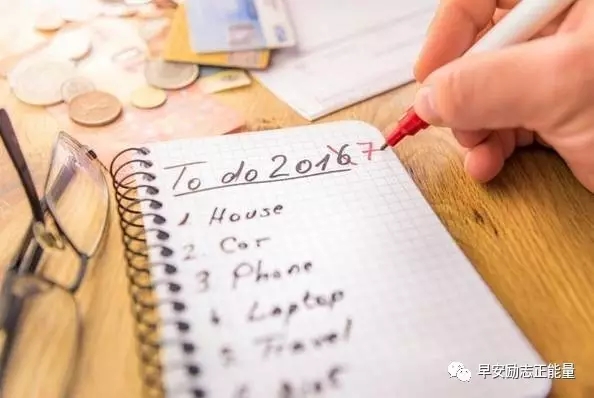 To do 20167
1. House
2. Car
3 Phone
4 Laptop
5. Travel
早安励志正能量